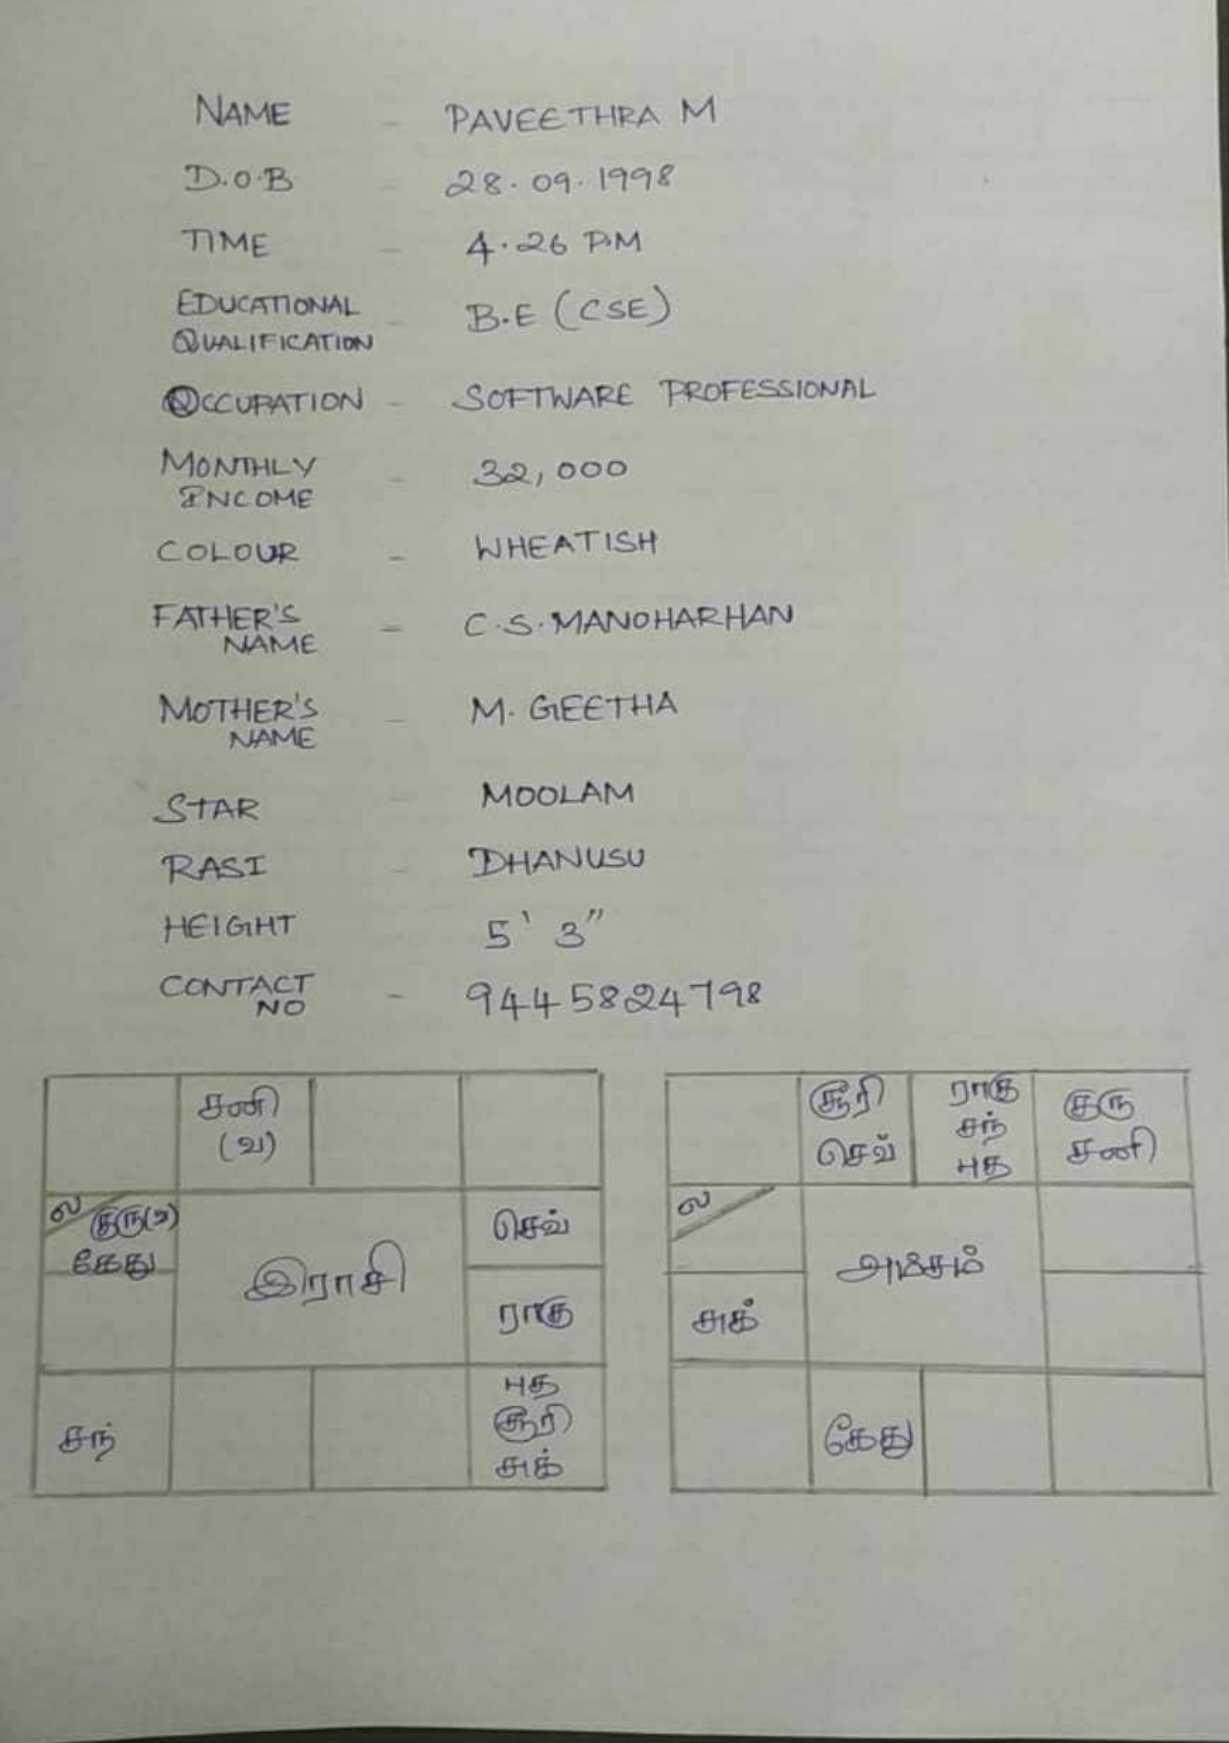 NAME - PAVEETHRA M
D.O.B - 28.09.1998
TIME - 4.26 P.M
EDUCATIONAL
QUALIFICATION - B.E (CSE)
OCCUPATION - SOFTWARE PROFESSIONAL
MONTHLY
INCOME - 32,000
COLOUR - WHEATISH
FATHER'S
NAME - C.S.MANOHARHAN
MOTHER'S
NAME - M. GEETHA
STAR - MOOLAM
RASI - DHANUSU
HEIGHT 5' 3"
CONTACT
NO - 9445824798
சனி
(வ)
ல குரு(வ)
கேது
இராசி
செவ்
ராகு
சந்
புத
சூரி
சுக்
சூரி
செவ்
ராகு
சந்
புத
குரு
சனி
ல
அம்சம்
சுக்
கேது